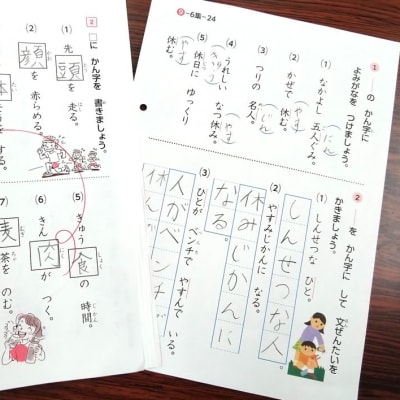 9-6集-24
1 ＿の かん字に
よみがなを つけましょう。
(1) なかよし 五人ぐみ。
にん
(2) かぜで 休む。
やす
(3) つりの 名人。
じん
(4) うれしい なつ休み。
やす
(5) 休日に ゆっくり
きゅう
休む。
やす
2 ＿を かん字に して 文ぜんたいを
かきましょう。
(1) しんせつな ひと。
しんせつな人。
(2) やすみじかんに なる。
休みじかんに
なる。
(3) ひとが ベンチで やすんで いる。
人がベ
休ん
ンチで
2 □に かん字を 書きましょう。
(1) 先頭を 走る。
(2) 顔を 赤らめる。
(5) きゅう食の 時間。
じかん
(6) きん肉が つく。
(7) 麦茶を のむ。
ちゃ